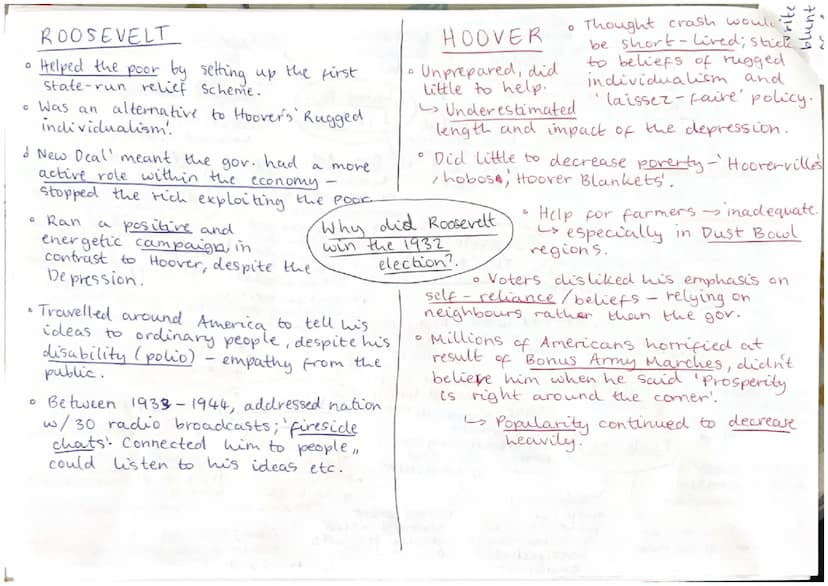 ROOSEVELT
Helped the poor by setting up the first
state-run relief scheme.
Was an alternative to Hoover's 'Rugged
individualism'.
'New Deal' meant the gov. had a more
active role within the economy –
stopped the rich exploiting the poor
Ran a positive and
energetic campaign, in
contrast to Hoover, despite the
Depression.
Travelled around America to tell his
ideas to ordinary people, despite his
disability (polio) – empathy from the
public.
Between 1933-1944, addressed nation
w/ 30 radio broadcasts; 'fireside
chats'. Connected him to people,,
could listen to his ideas etc.
Why did Roosevelt
win the 1932
election?
HOOVER
Thought crash would
be short-lived; stick
to beliefs of rugged
individualism and
'laissez-faire' policy.
Unprepared, did
little to help.
↳ Underestimated
length and impact of the depression.
Did little to decrease poverty – 'Hoovervilles'
, hobos, 'Hoover Blankets'.
Help for farmers → inadequate.
↳ especially in Dust Bowl
regions.
Voters disliked his emphasis on
self-reliance/beliefs – relying on
neighbours rather than the gov.
Millions of Americans horrified at
result of Bonus Army Marches, didn't
believe him when he said 'Prosperity
is right around the corner'.
↳ Popularity continued to decrease
heavily.
write
blunt